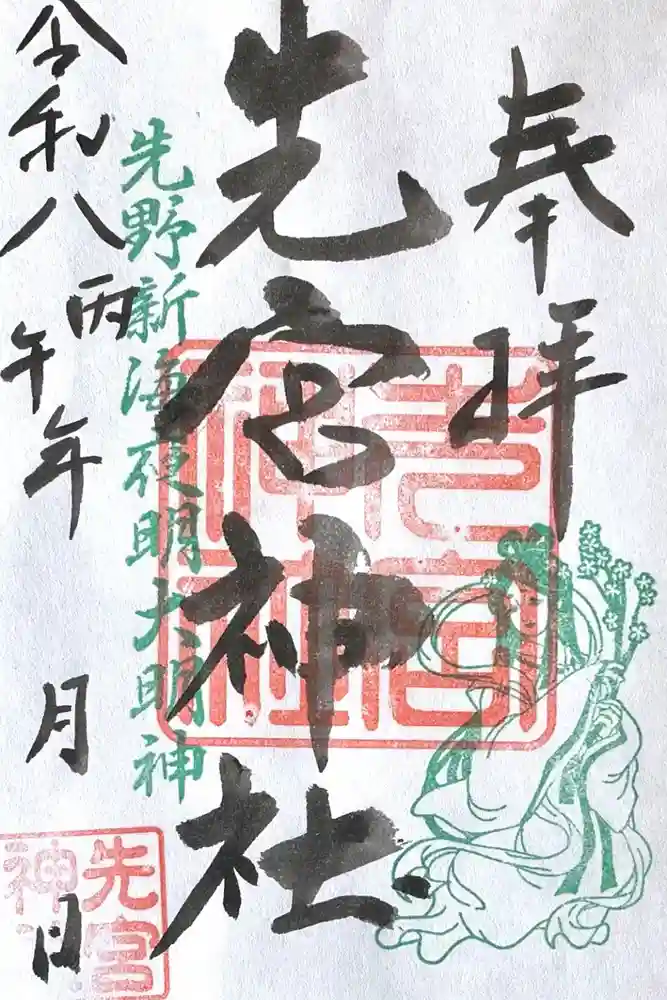 奉拝
先宮神社
先宮神社
先野新海夜明大明神
令和八丙午年 月 日
先宮
神